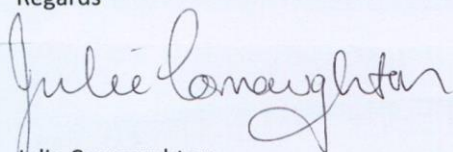 Regards
Julie Connaughton